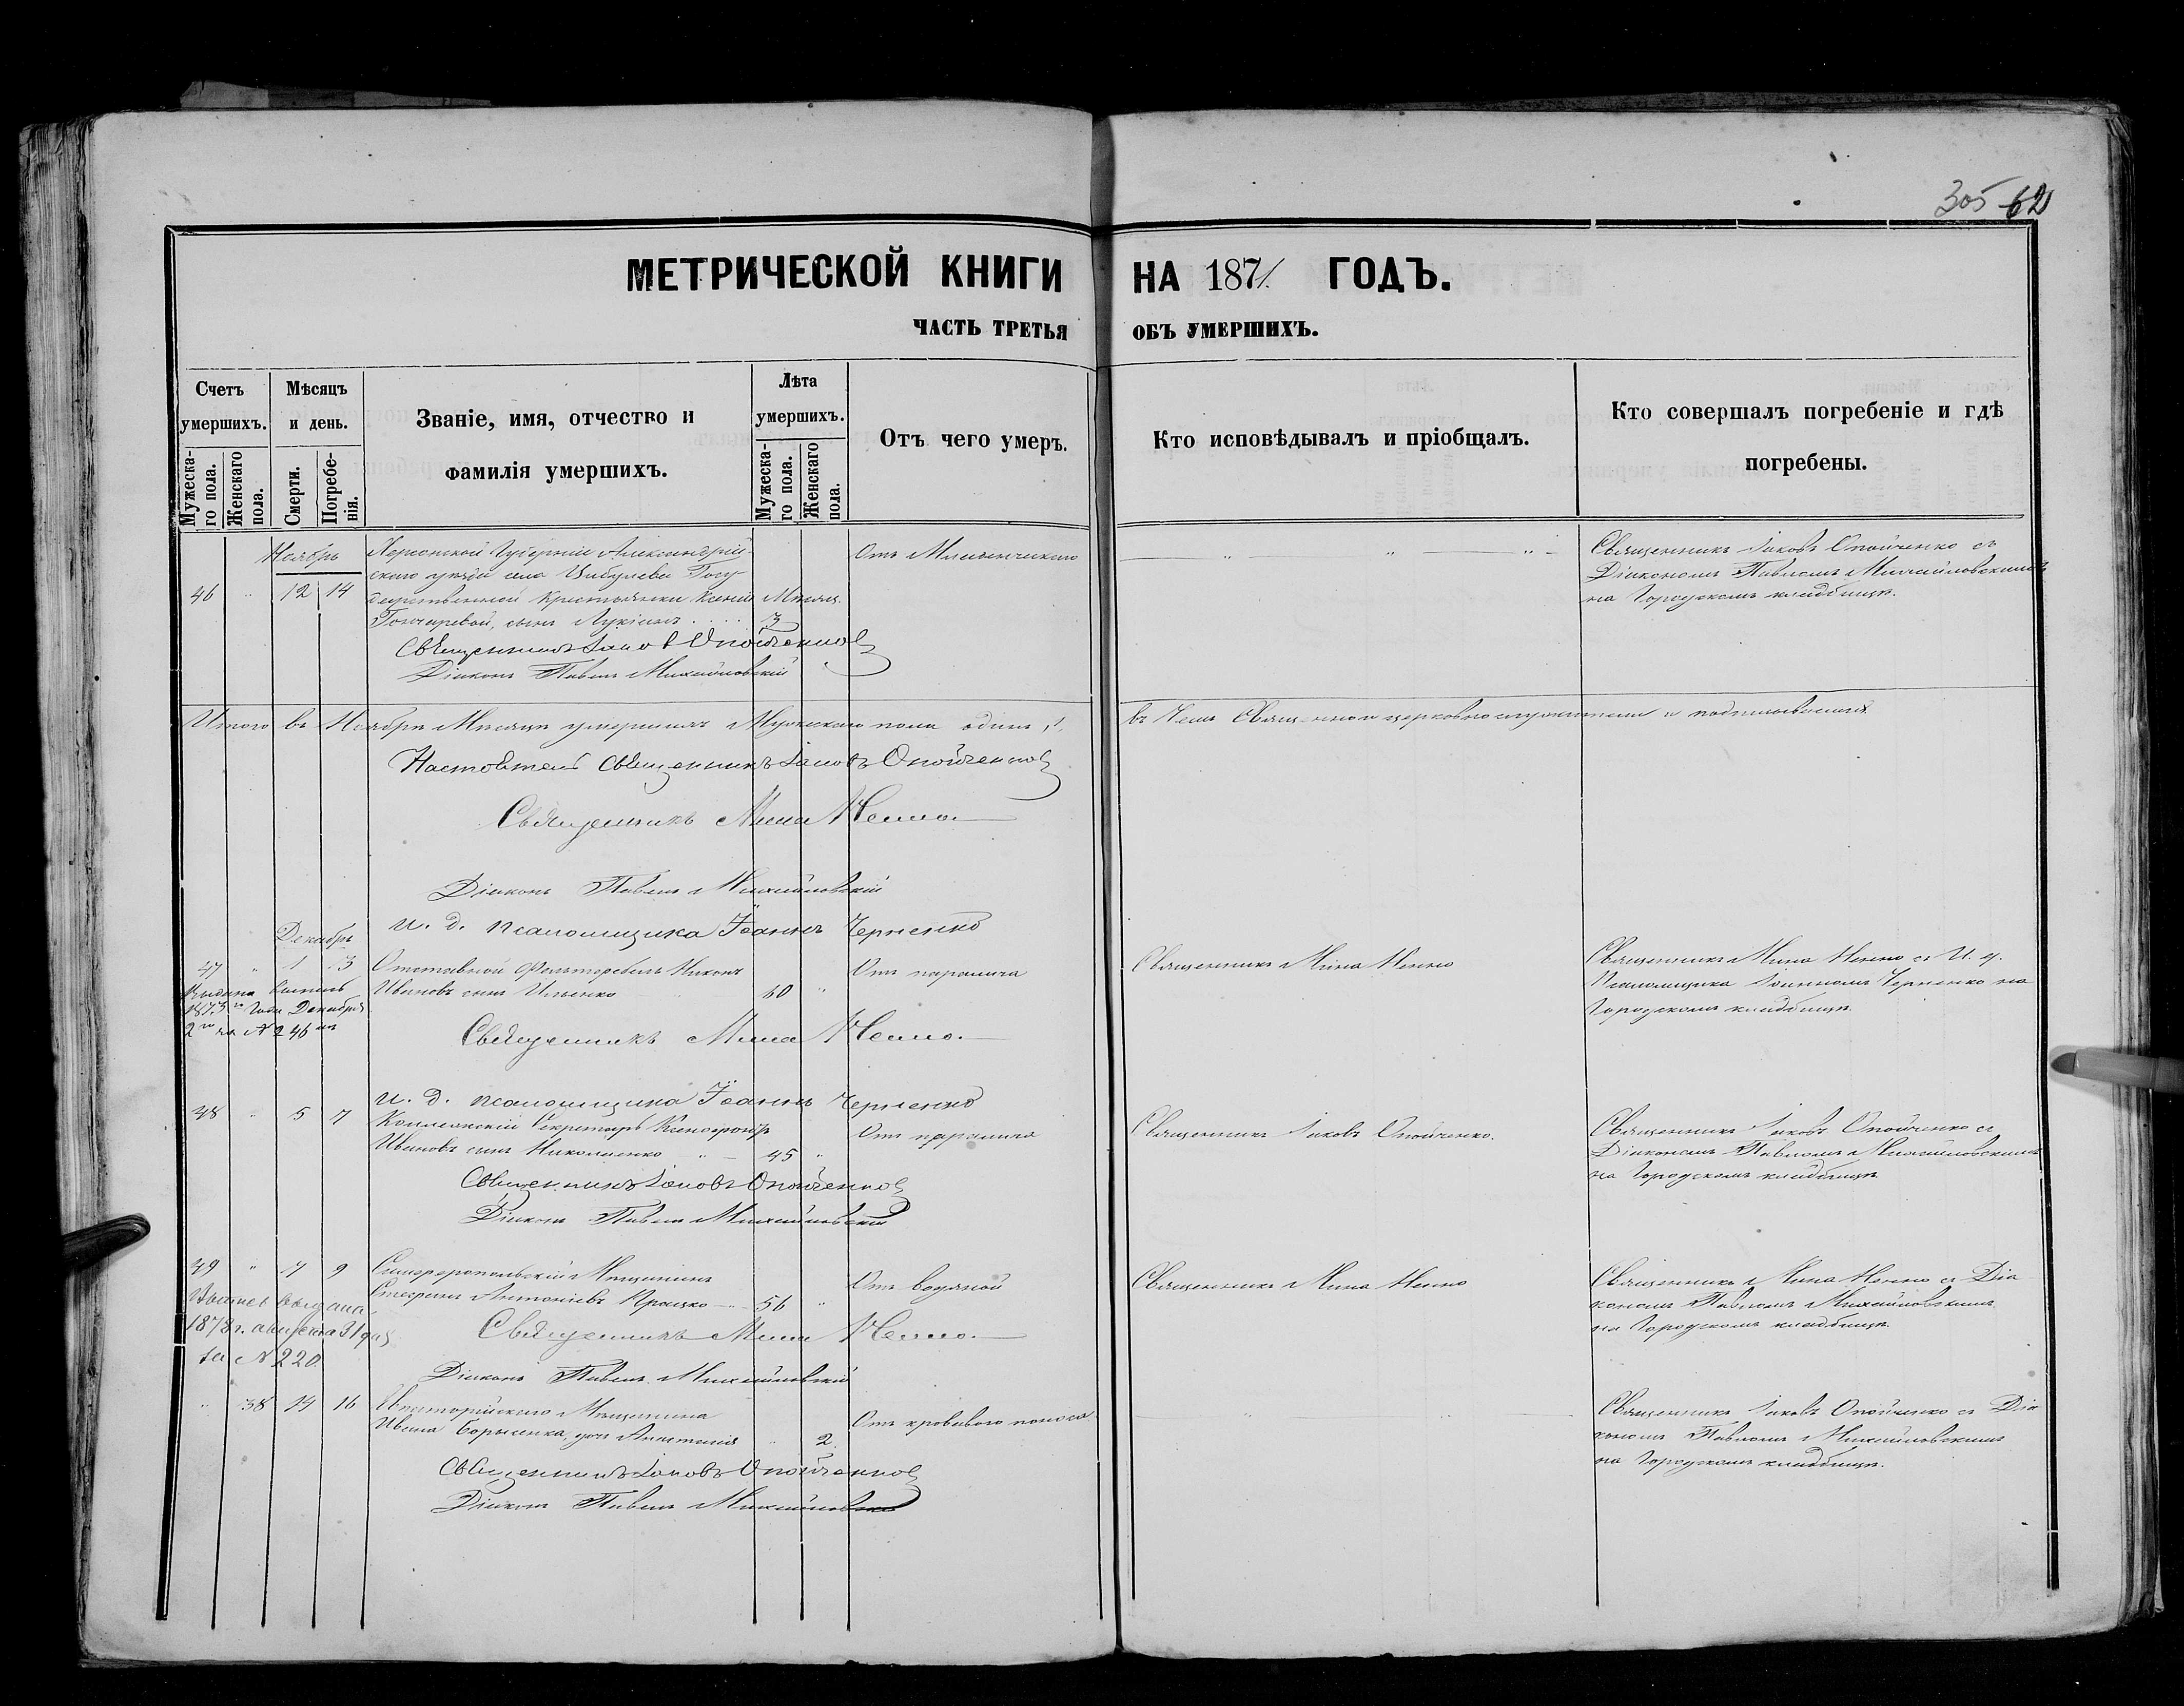 305 62
МЕТРИЧЕСКОЙ КНИГИ НА 1871 ГОДЪ.
ЧАСТЬ ТРЕТЬЯ ОБЪ УМЕРШИХЪ.
Счетъ умершихъ.
Мужеска-го пола.
Женскаго пола.
Мѣсяцъ и день.
Смерти.
Погребе-нія.
Званіе, имя, отчество и
фамилія умершихъ.
Лѣта умершихъ.
Мужеска-го пола.
Женскаго пола.
Отъ чего умеръ.
Кто исповѣдывалъ и пріобщалъ.
Кто совершалъ погребеніе и гдѣ
погребены.
Ноябрь
46 " 12 14
Херсонской Губерніи Александрій-
скаго уѣзда села Цибулева Госу-
дарственной Крестьянки Ксеніи
Гончаревой, сынъ
Мѣсяц.
3
Отъ Младенческаго
Священникъ Іаковъ Опойченко съ
Діакономъ Павломъ Михайловскимъ
на Городскомъ кладбищѣ.
Священникъ Іаковъ Опойченко
Діаконъ Павелъ Михайловскій
Итого въ Ноябрѣ Мѣсяцѣ умершихъ Мужескаго пола одинъ, 1,
въ чемъ Священно и церковнослужители и подписываемся.
Настоятель Священникъ Іаковъ Опойченко
Священникъ Мина Ненно.
Діаконъ Павелъ Михайловскій
И. д. псаломщика Іоаннъ Черненко
Декабрь
47 " 1 3
Отставной Фельдфебель Никонъ
Ивановъ сынъ Ильенко 60 "
Отъ паралича
Священникъ Мина Ненно
Священникъ Мина Ненно съ И. д.
Псаломщика Іоанномъ Черненко на
Городскомъ кладбищѣ.
1873 года Декабря
2 за № 246
Священникъ Мина Ненно.
И. д. псаломщика Іоаннъ Черненко
48 " 5 7
Коллежскій Секретарь Ксенофонтъ
Ивановъ сынъ Николаенко 45 "
Отъ паралича
Священникъ Іаковъ Опойченко.
Священникъ Іаковъ Опойченко съ
Діакономъ Павломъ Михайловскимъ
на Городскомъ кладбищѣ
Священникъ Іаковъ Опойченко
Діаконъ Павелъ Михайловскій
49 " 7 9
Симферопольскій Мѣщанинъ
Стефанъ Антоніевъ 56 "
Отъ водяной
Священникъ Мина Ненно
Священникъ Мина Ненно съ Діа
кономъ Павломъ Михайловскимъ
на Городскомъ кладбищѣ.
выдана
1878 г. августа 31 дня
за № 220
Священникъ Мина Ненно.
Діаконъ Павелъ Михайловскій
" 38 14 16
Евпаторійскаго Мѣщанина
Ивана Борысенка, дочь Анастасія " 2.
Отъ кроваваго поноса
Священникъ Іаковъ Опойченко съ Діа
кономъ Павломъ Михайловскимъ
на Городскомъ кладбищѣ.
Священникъ Іаковъ Опойченко
Діаконъ Павелъ Михайловскій